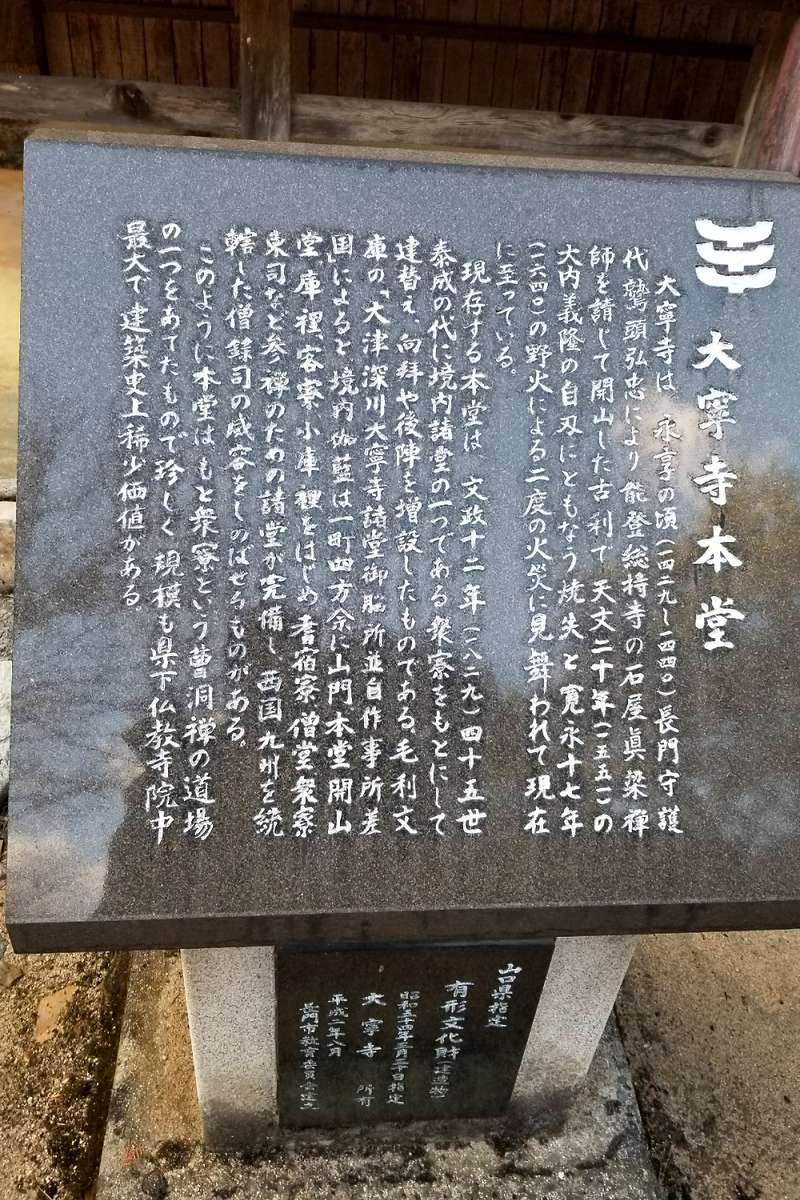 大寧寺本堂
大寧寺は、永享の頃(一四二九〜一四四〇)長門守護
代鷲頭弘忠により能登総持寺の石屋眞梁禅
師を請じて開山した古刹で天文二十年(一五五一)の
大内義隆の自刃にともなう焼失と寛永十七年
(一六四〇)の野火による二度の火災に見舞われて現在
に至っている。
現存する本堂は、文政十二年(一八二九)四十五世
泰成の代に境内諸堂の一つである衆寮をもとにして
建替え、向拜や後陣を増設したものである。毛利文
庫の「大津深川大寧寺諸堂御脳所並自作事所差
図」によると境内伽藍は一町四方余に山門本堂開山
堂、庫裡、客寮小庫裡をはじめ書宿寮僧堂衆寮
東司など参禅のための諸堂が完備し西国九州を統
轄した僧録司の威容をしのばせるものがある。
このように本堂はもと衆寮という曹洞禅の道場
の一つをあてたもので珍しく規模も県下仏教寺院中
最大で建築史上稀少価値がある。
山口県指定
有形文化財(建造物)
昭和五十四年三月三十日指定
大寧寺 所有
平成一年八月
長門市教育委員会建立